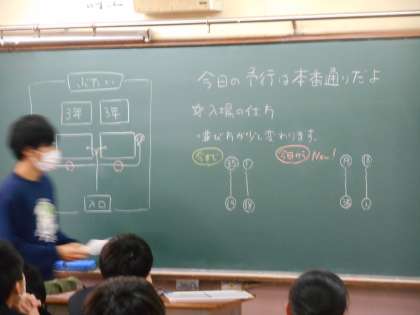 今日の予行は本番通りだよ
☆入場の仕方
・並び方が少し変わります。
今まで
今日から New!
ぶたい
3年 3年
入口